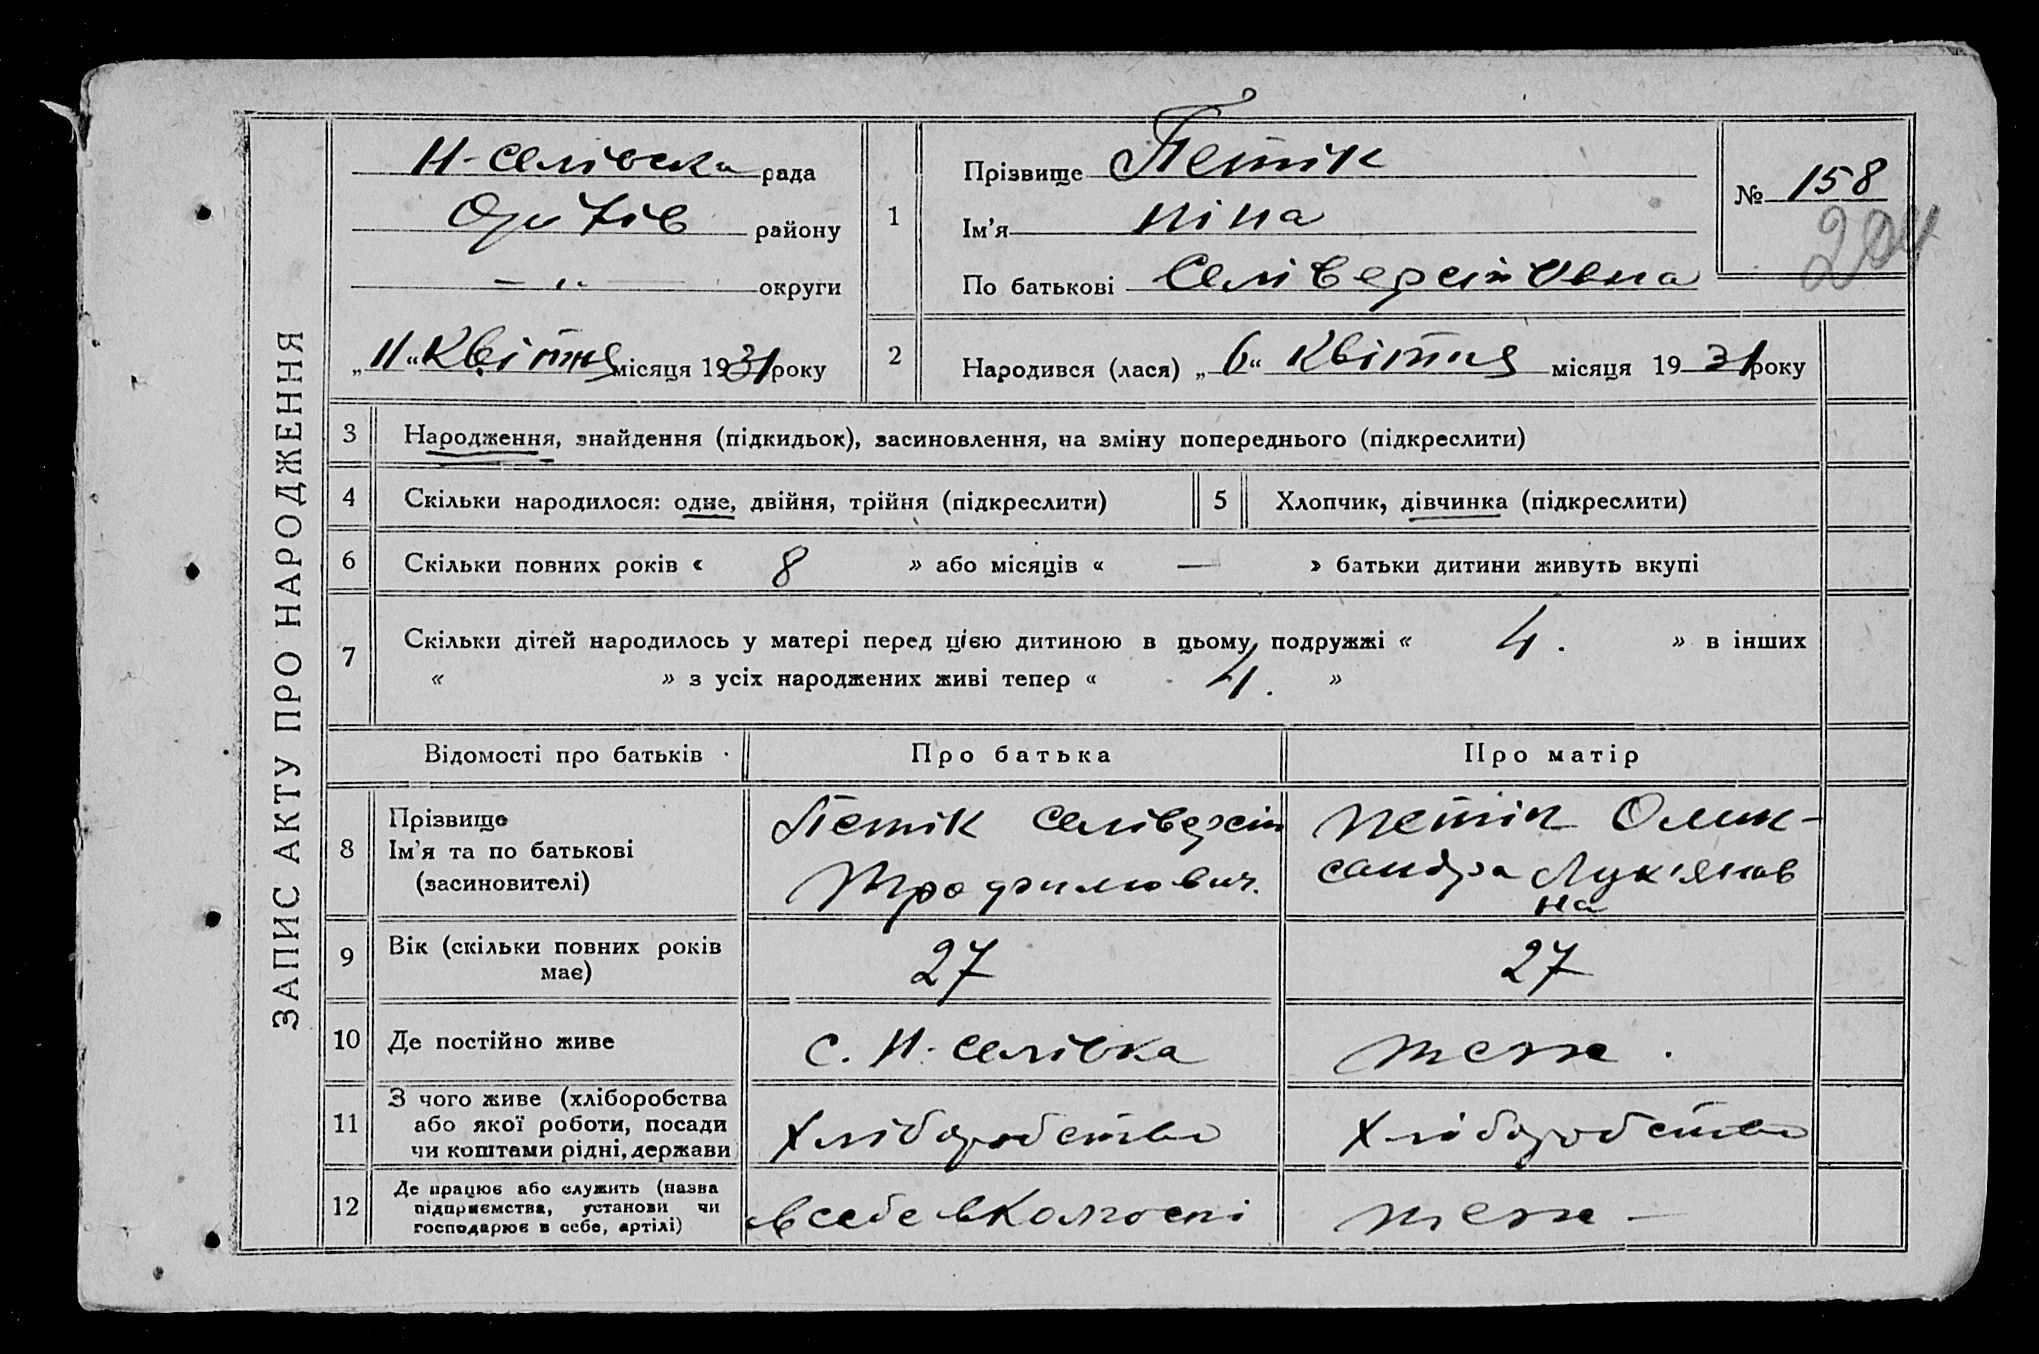 ЗАПИС АКТУ ПРО НАРОДЖЕННЯ
Н-Селівська рада
району
— „ — округи
„11“ Квітня місяця 1931 року
1
Прізвище Петік
Ім’я Ніна
По батькові Селіверстівна
№ 158
204
2
Народився (лася) „6“ Квітня місяця 1931 року
3 Народження, знайдення (підкидьок), засиновлення, на зміну попереднього (підкреслити)
4 Скільки народилося: одне, двійня, трійня (підкреслити) 5 Хлопчик, дівчинка (підкреслити)
6 Скільки повних років « 8 » або місяців « — » батьки дитини живуть вкупі
7 Скільки дітей народилось у матері перед цією дитиною в цьому подружжі « 4. » в інших
« » з усіх народжених живі тепер « 4. »
Відомості про батьків Про батька Про матір
8
Прізвище
Ім’я та по батькові
(засиновителі)
Петік Селіверст
Трофимович.
Петік Олек-
сандра Лук'янов
на
9
Вік (скільки повних років
має)
27
27
10 Де постійно живе
с. Н-Селівка
теж.
11
З чого живе (хліборобства
або якої роботи, посади
чи коштами рідні, держави
Хліборобство
Хліборобство
12
Де працює або служить (назва
підприємства, установи чи
господарює в себе, артілі)
в себе в колгоспі
теж —